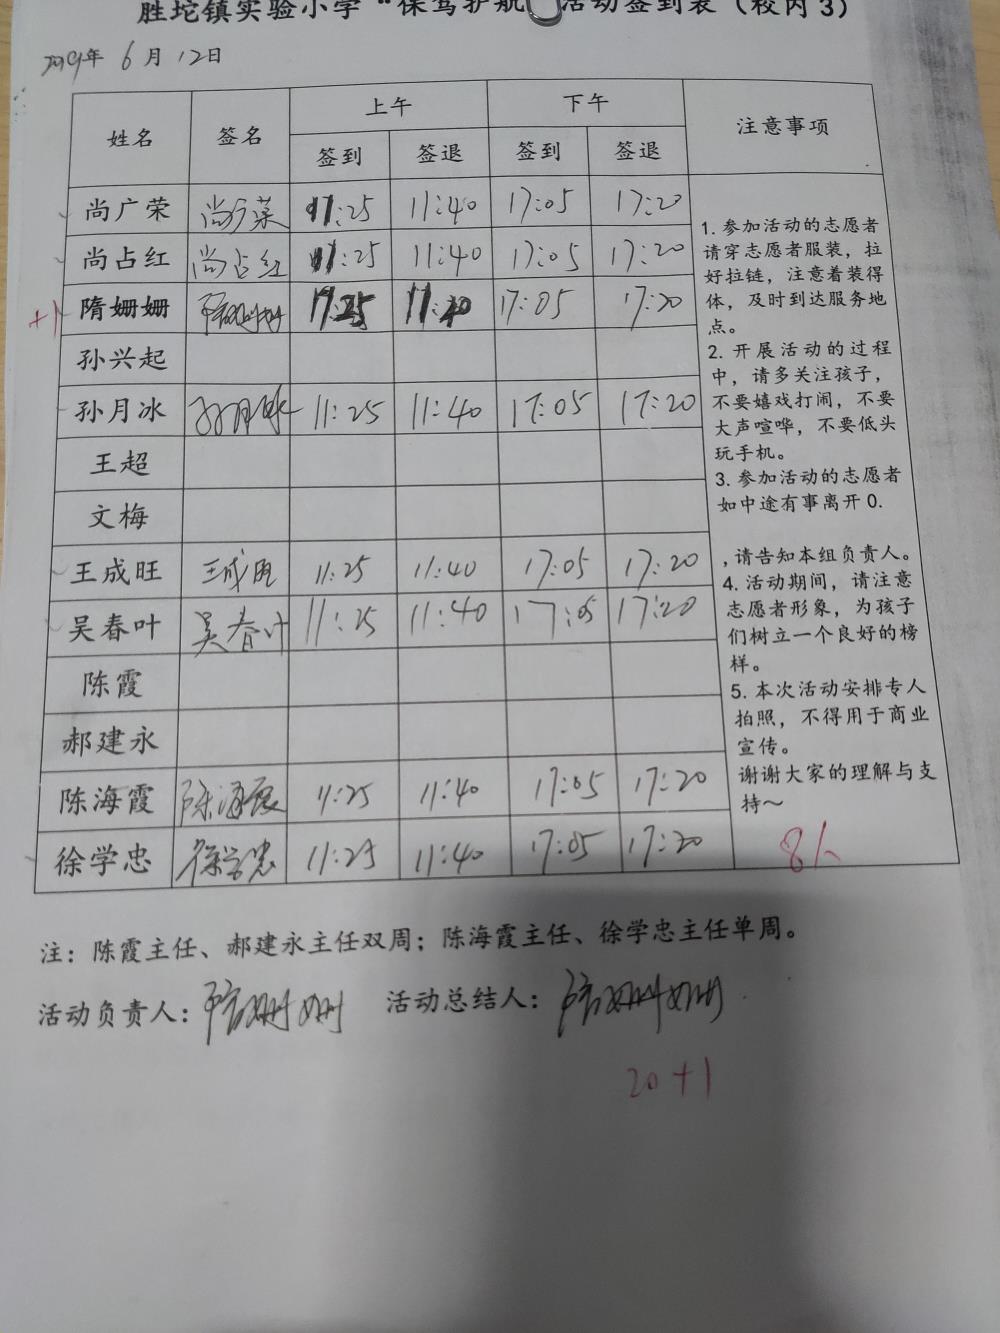 胜坨镇实验小学“保驾护航”活动签到表（校内3）
2019年 6月 12日
姓名 签名 上午 下午 注意事项
签到 签退 签到 签退
尚广荣 尚广荣 11:25 11:40 17:05 17:20
尚占红 尚占红 11:25 11:40 17:05 17:20
+1 隋姗姗 隋姗姗 11:25 11:40 17:05 17:20
孙兴起
孙月冰 孙月冰 11:25 11:40 17:05 17:20
王超
文梅
王成旺 王成旺 11:25 11:40 17:05 17:20
吴春叶 吴春叶 11:25 11:40 17:05 17:20
陈霞
郝建永
陈海霞 陈海霞 11:25 11:40 17:05 17:20
徐学忠 徐学忠 11:25 11:40 17:05 17:20
1. 参加活动的志愿者
请穿志愿者服装，拉
好拉链，注意着装得
体，及时到达服务地
点。
2. 开展活动的过程
中，请多关注孩子，
不要嬉戏打闹，不要
大声喧哗，不要低头
玩手机。
3. 参加活动的志愿者
如中途有事离开0.
,请告知本组负责人。
4. 活动期间，请注意
志愿者形象，为孩子
们树立一个良好的榜
样。
5. 本次活动安排专人
拍照，不得用于商业
宣传。
谢谢大家的理解与支
持～
8人
注：陈霞主任、郝建永主任双周；陈海霞主任、徐学忠主任单周。
活动负责人：隋姗姗 活动总结人：隋姗姗
20+1